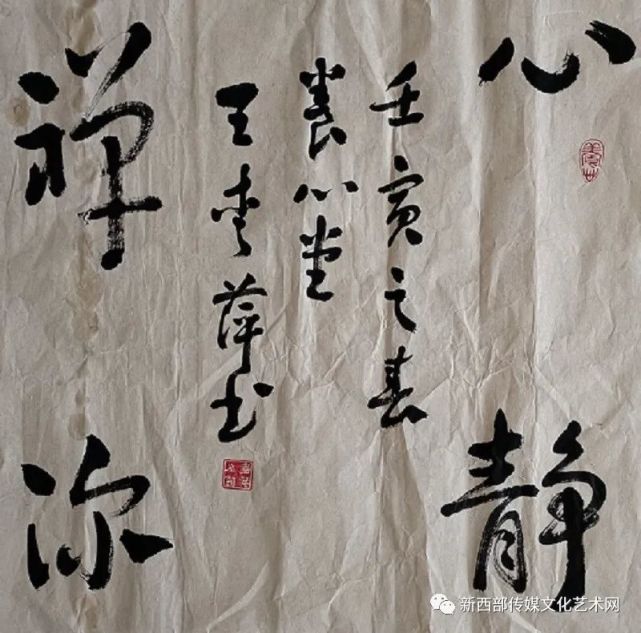 心静
壬寅之春
養心堂
王秀萍书
禅深
新西部传媒文化艺术网